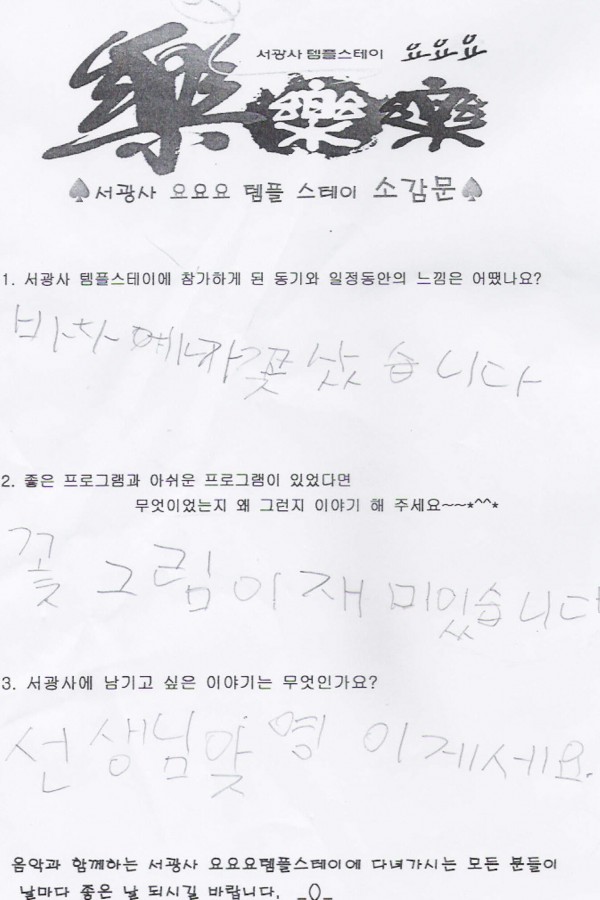 서광사 템플스테이 요요요
樂 樂 樂
♠서광사 요요요 템플 스테이 소감문♠
1. 서광사 템플스테이에 참가하게 된 동기와 일정동안의 느낌은 어땠나요?
꽃 샀습니다
2. 좋은 프로그램과 아쉬운 프로그램이 있었다면
무엇이었는지 왜 그런지 이야기 해 주세요~~*^^*
꽃 그림이 재미있습니다
3. 서광사에 남기고 싶은 이야기는 무엇인가요?
선생님 이계세요.
음악과 함께하는 서광사 요요요템플스테이에 다녀가시는 모든 분들이
날마다 좋은 날 되시길 바랍니다. _()_